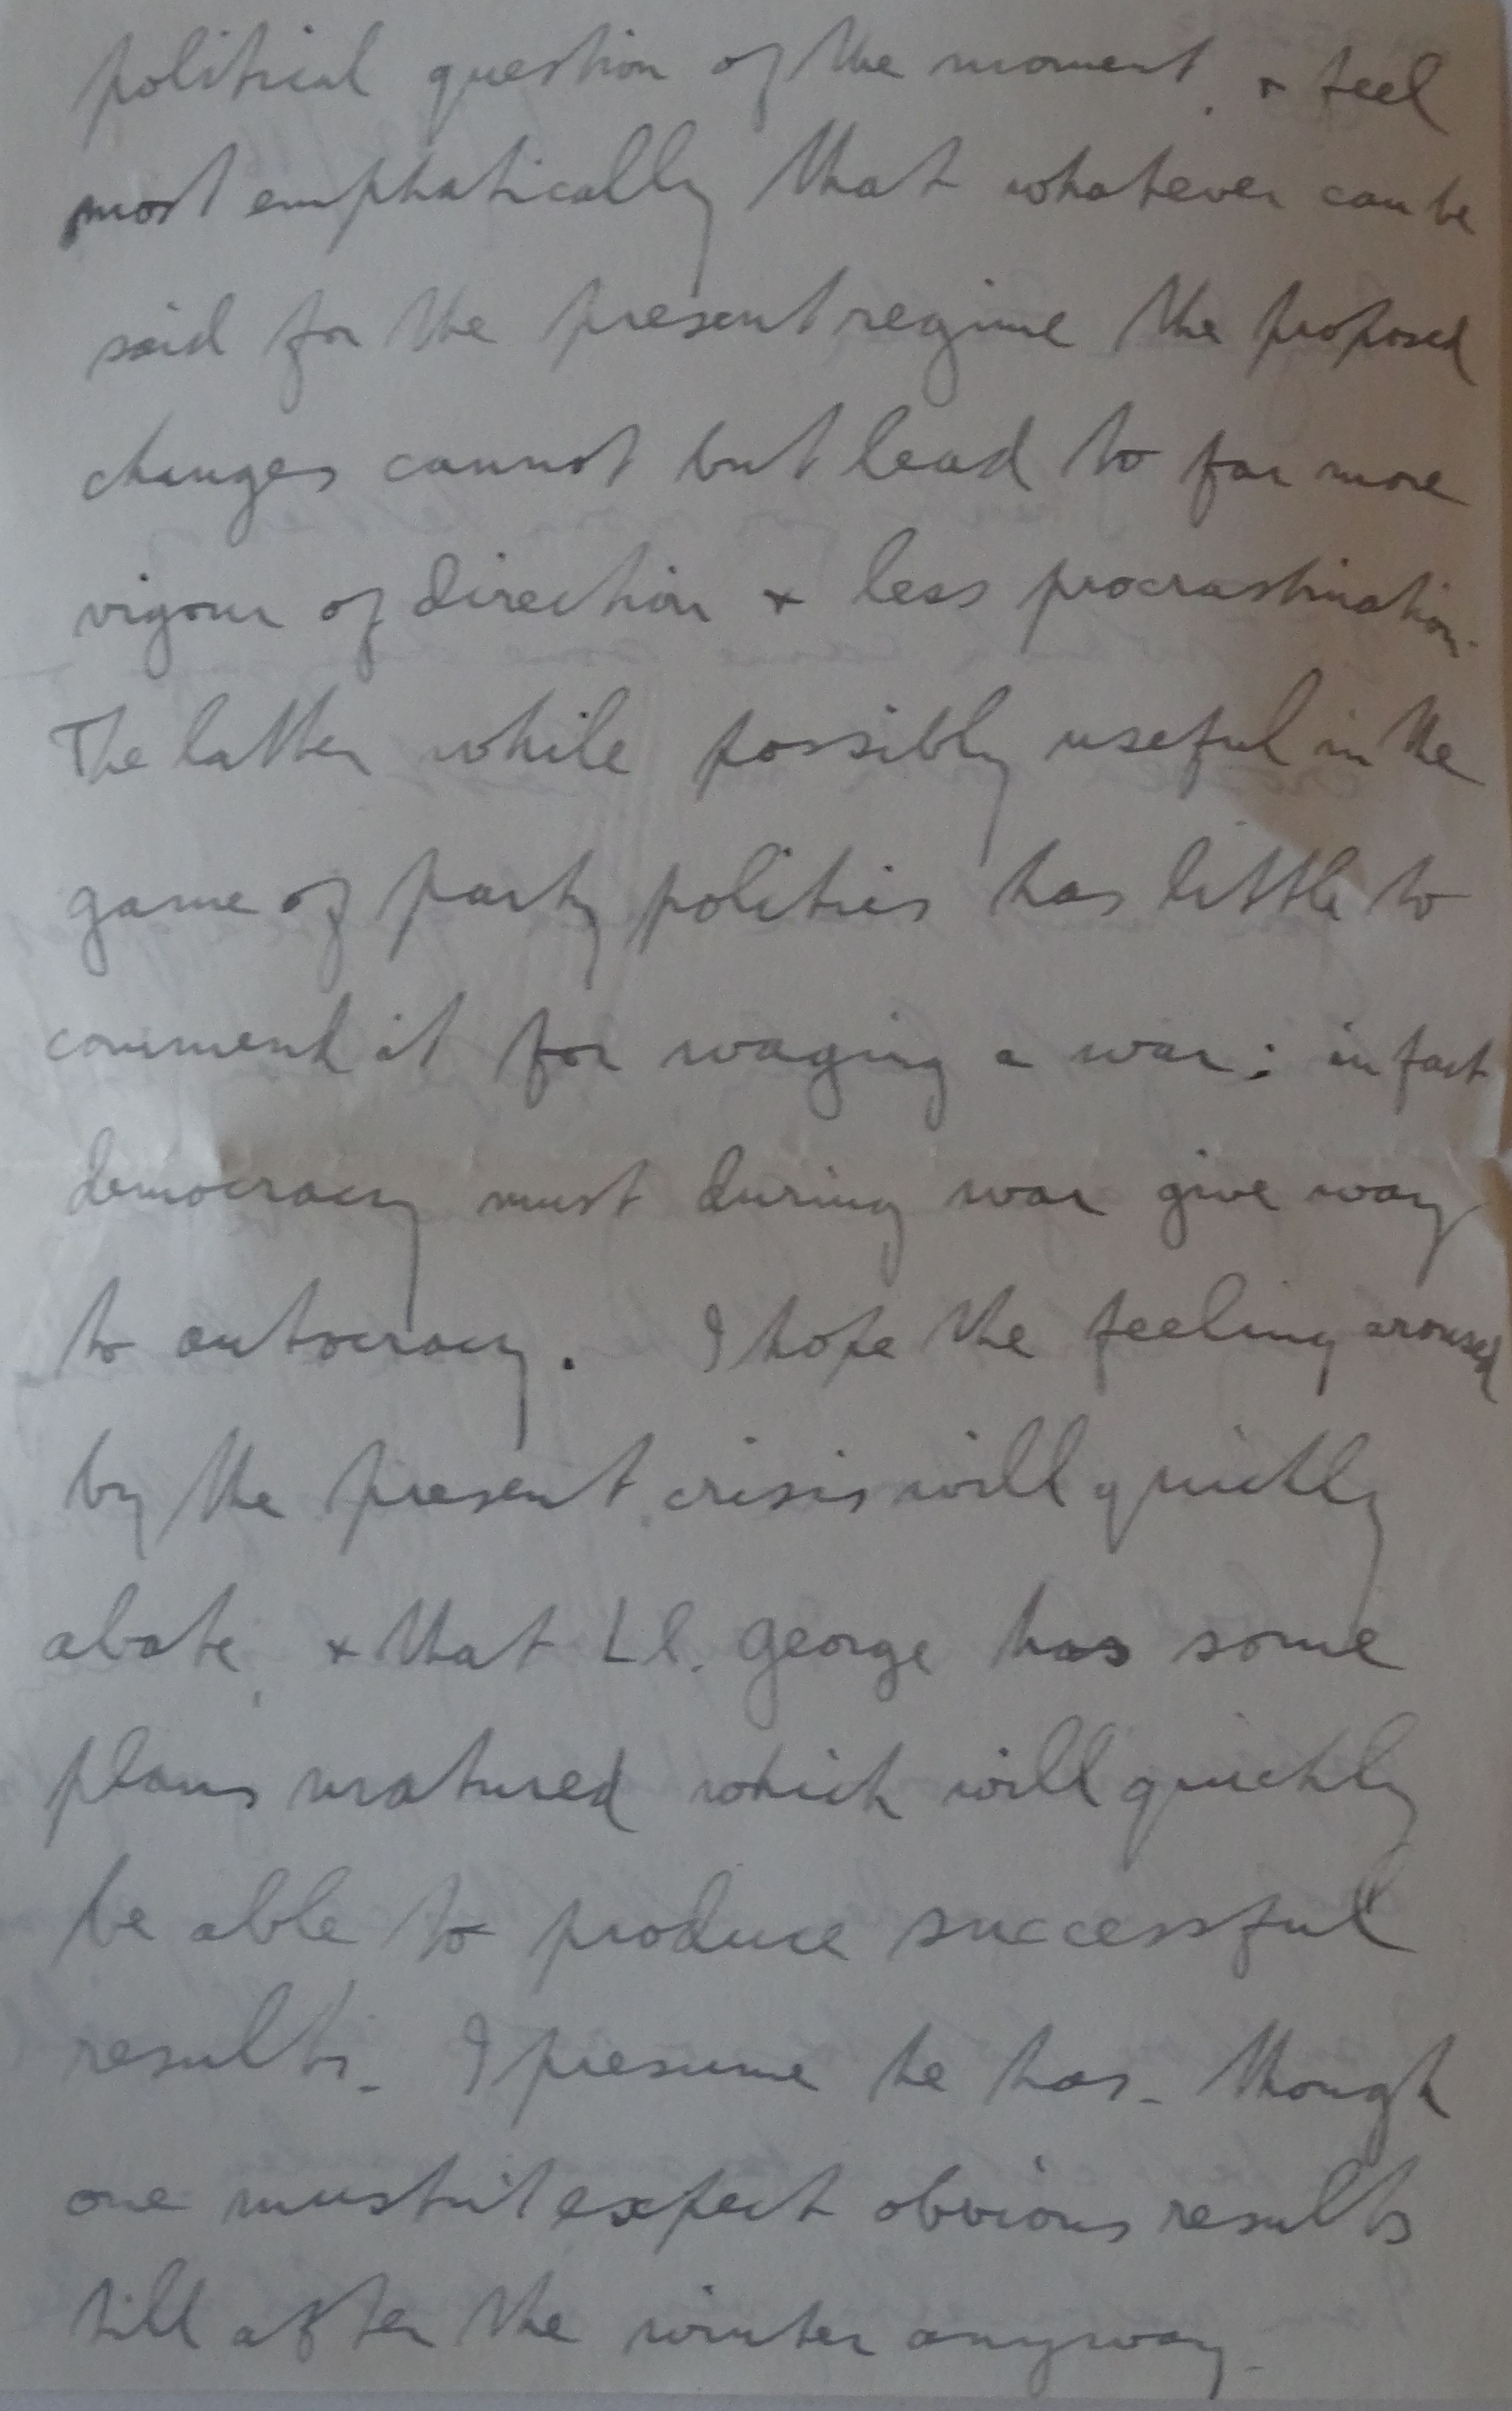 political question of the moment, + feel
most emphatically that whatever can be
said for the present regime the proposed
changes cannot but lead to far more
vigour of direction + less procrastination.
The latter while possibly useful in the
game of party politics has little to
commend it for waging a war: in fact
democracy must during war give way
to autocracy. I hope the feeling aroused
by the present crisis will quickly
abate, + that Ll. George has some
plans matured which will quickly
be able to produce successful
results. I presume he has - though
one mustn't expect obvious results
till after the winter anyway.